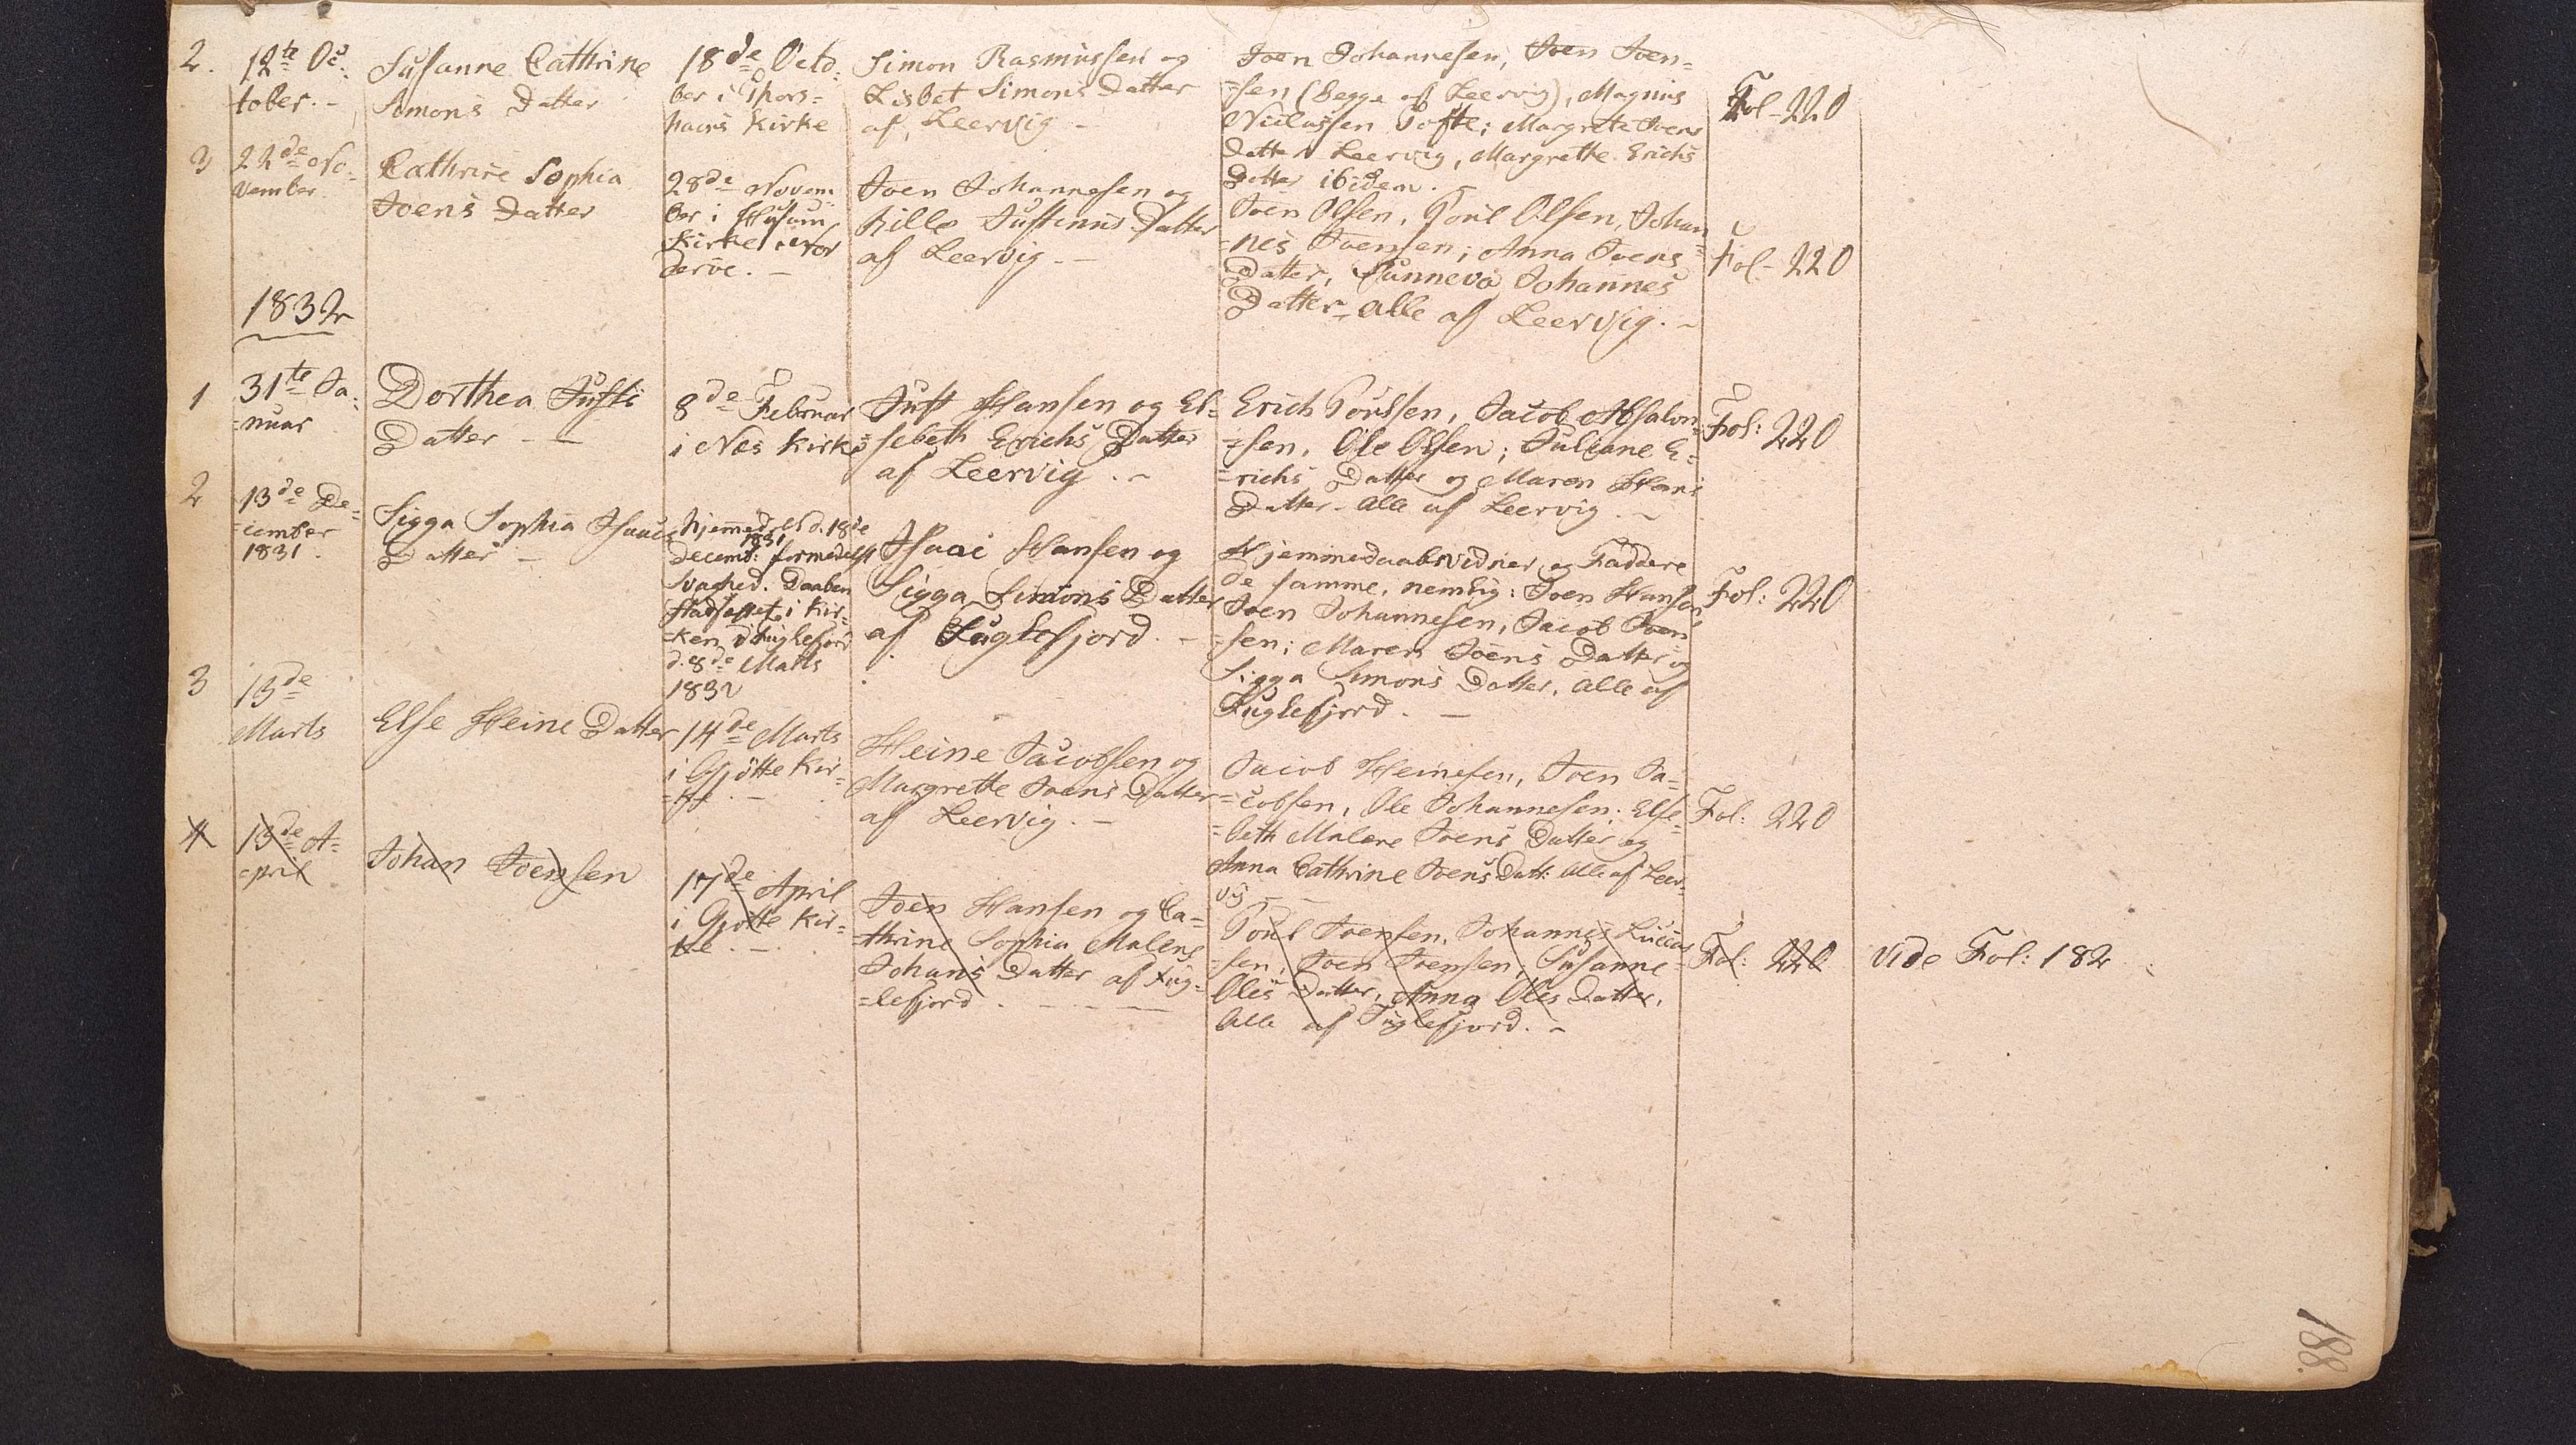 2.
12te Oc=
tober. -
Susanne Cathrine
Simons Datter
18de Octo
ber i Thors=
havns Kirke
Simon Rasmussen og
Lisbet Simons Datter
af Leervig -
Joen Johannesen, Joen Joen=
=sen (begge af Leervig), Magnus
Niclassen Tofte; Margrete Joens
Datter Leervig, Margrethe Erichs
Datter ibidem.
Fol - 220
3
22de No=
vember
Cathrine Sophia
Joens Datter
28de Novem
ber i Husum
Kirke i Nor
derøe. -
Joen Johannesen og
Bille Justinus Datter
af Leervig. -
Joen Olsen, Poul Olsen, Johan
=nes Joensen; Anna Joens
Datter, Sunneva Johannes
Datter - alle af Leervig. -
Fol - 220
1832
1
31te Ja=
=nuar
Dorthea Justs
Datter - -
8de Februar
i Næs Kirke
Just Hansen og El=
=sebeth Erichs Datter
af Leervig . -
Erich Poulsen, Jacob Absalon=
=sen, Ole Olsen; Juliane E=
=richs Datter og Maren Hans
Datter - alle af Leervig. -
Fol: 220
2
13de De=
=cember
1831.
Sigga Sophia Isaacs
Datter -
hjemmedøbt d. 18de
1831
Decembr: formedelst
Svaghed. Daaben
stadfæstet i Kir=
=ken i Fuglefjord
d. 8de Marts
1832
Isaac Hansen og
Sigga Simons Datter
af Fuglefjord. -
Hjemmedaabsvidner og Faddere
de samme, nemlig: Joen Hansen,
Joen Johannesen, Jacob Joen
=sen; Maren Joens Datter og
Sigga Simons Datter, alle af
Fuglefjord. -
Fol: 220
3
13de
Marts
Else Heine Datter
14de Marts
i Gjøtte Kir=
=ke. -
Heine Jacobsen og
Margrethe Joens Datter
af Leervig. -
Jacob Heinesen, Joen Ja=
=cobsen, Ole Johannesen; Else=
=beth Malene Joens Datter og
Anna Cathrine Joens Datt: alle af Leer=
vig -
Fol: 220
4
13de A=
=pril
Johan Joensen
17de April
i Gjøtte Kir=
ke. -
Joen Hansen og Ca=
=thrine Sophia Malene
Johans Datter af Fug=
=lefjord. - - - -
Poul Joensen, Johannes Lucas
=sen, Joen Joensen, Susanne
Oles Datter, Anna Oles Datter,
alle af Fuglefjord. -
Fol: 220
Vide Fol: 182
188.